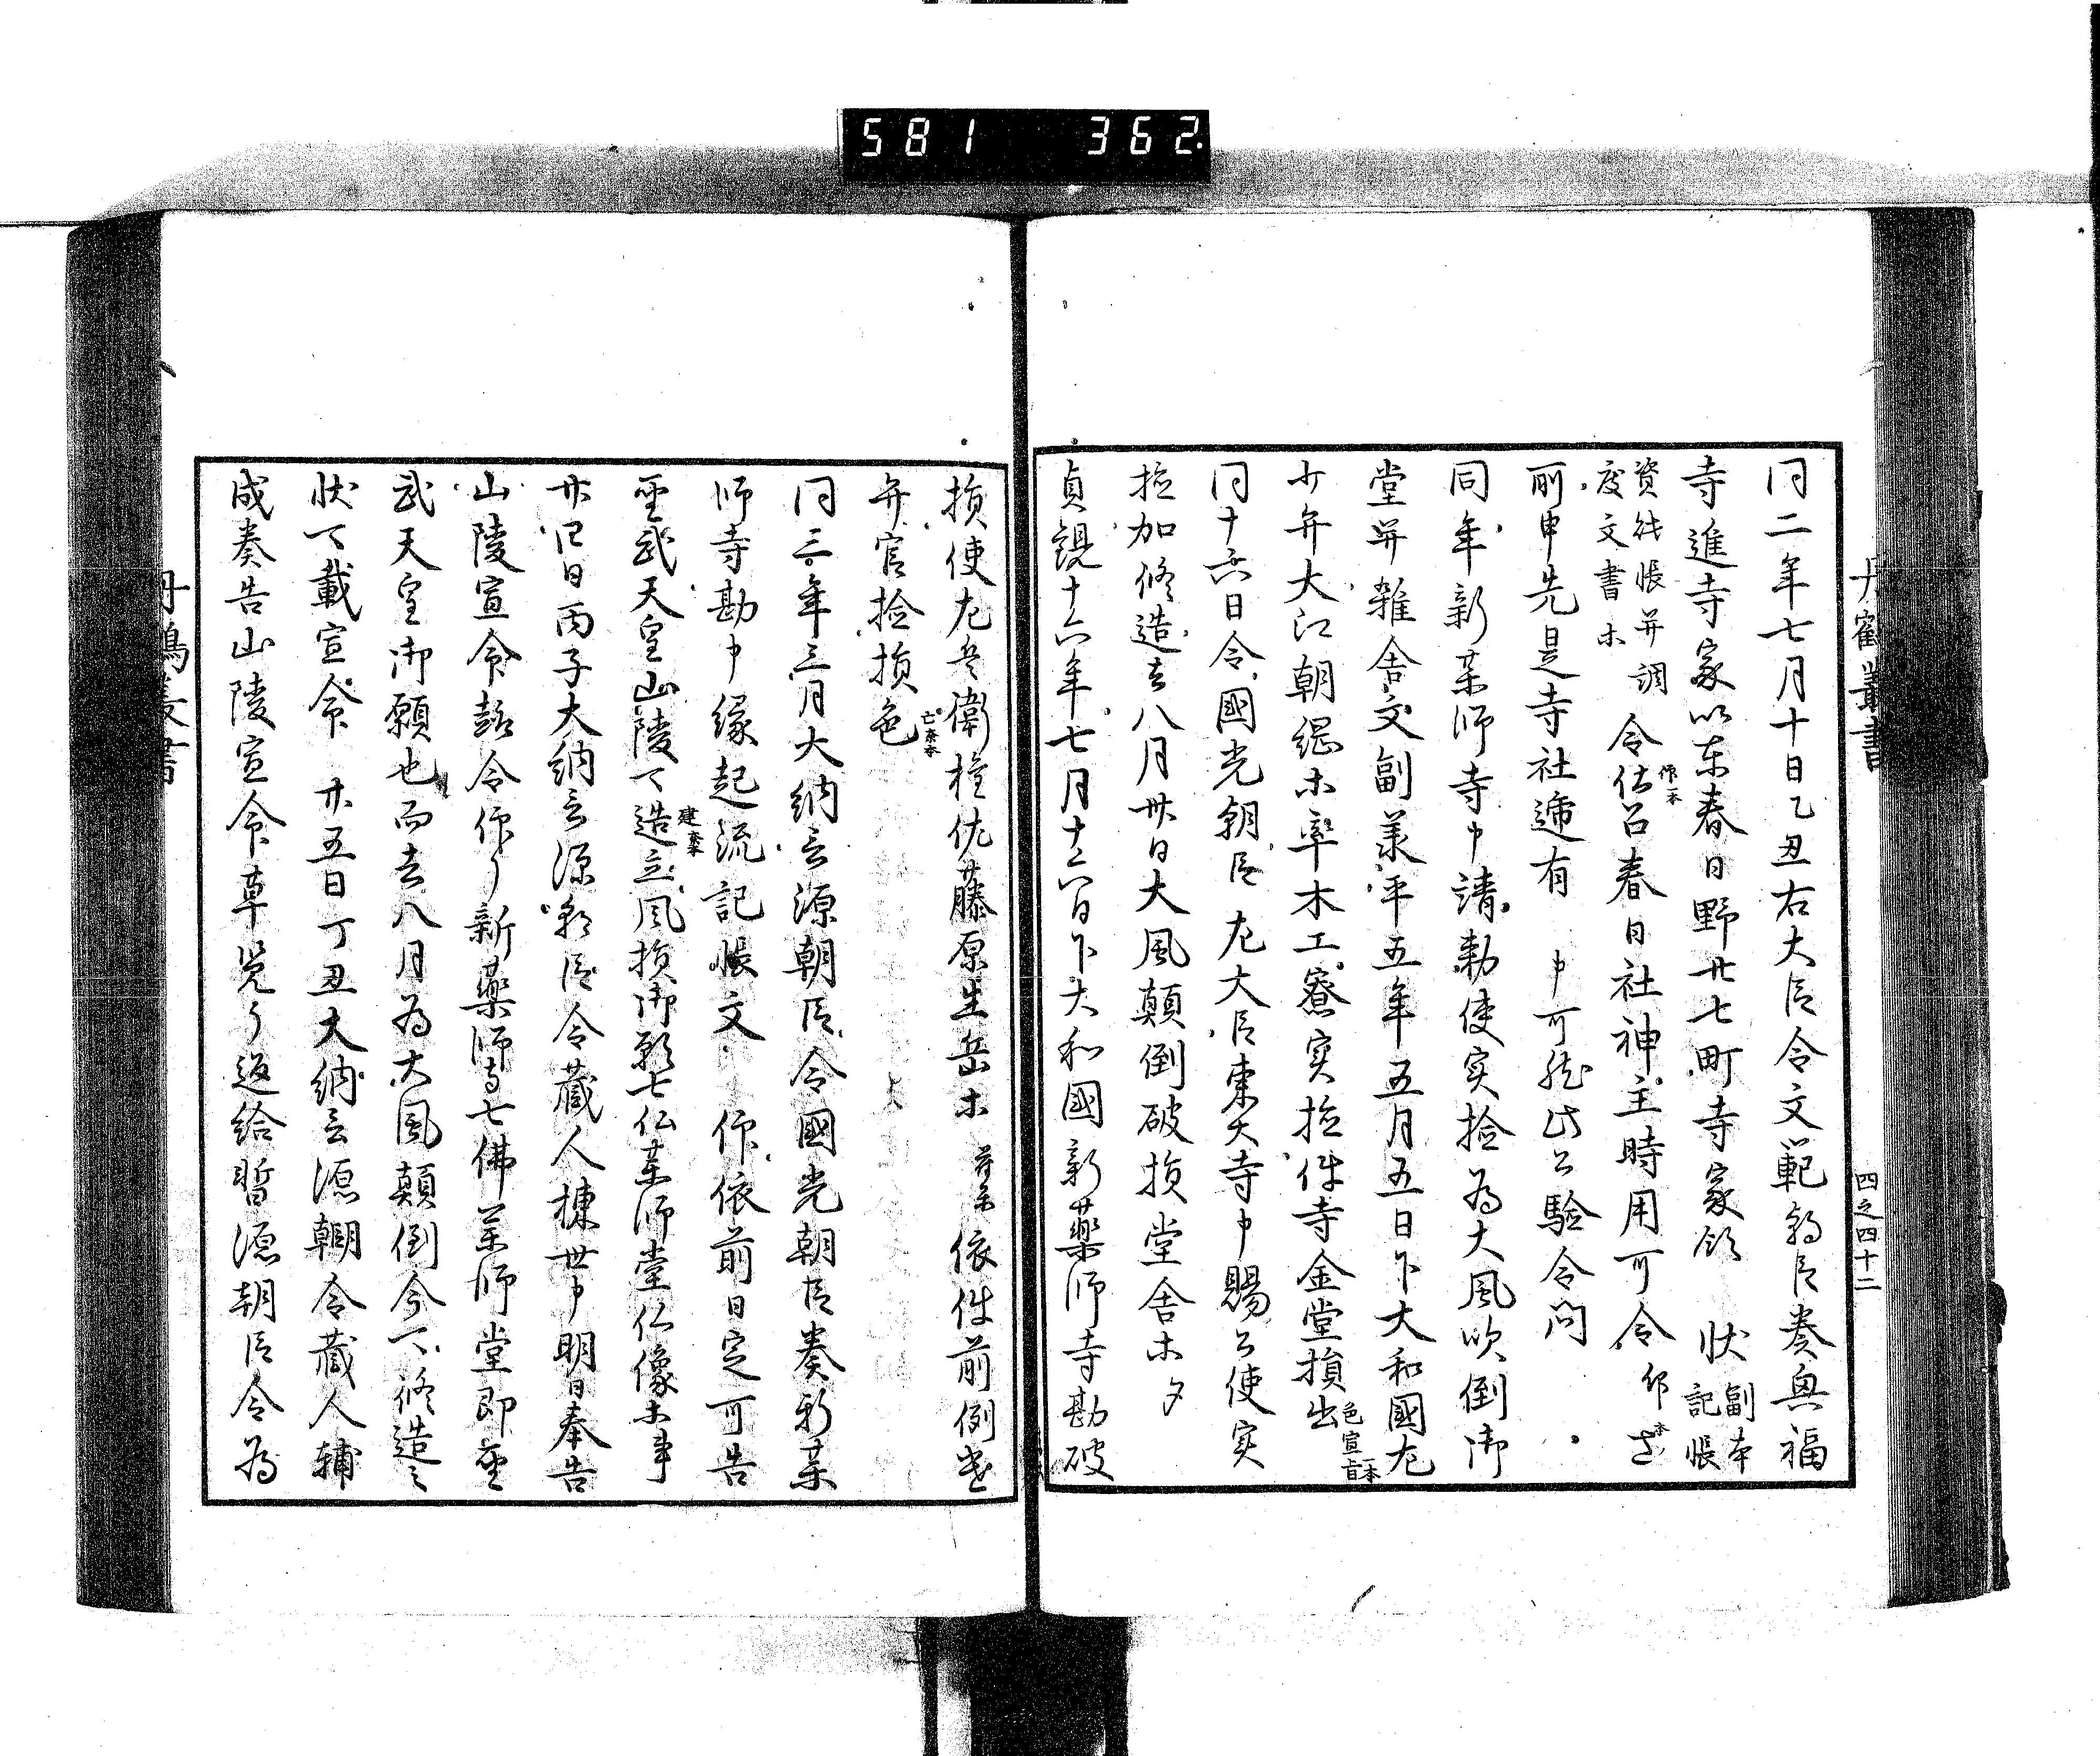 581 362
丹鶴叢書
四之四十二
同二年七月十日乙丑右大臣令文範朝臣奏興福
寺進寺家以东春日野廿七町寺家領 状副本記帳
資䏻帳并調度文書ホ 令仕召春日社神主時用可令
前申先是寺社遞有 申可然此公驗令問
同年新薬師寺申請勅使实捡為大風吹倒御
堂并雜舎文副羕平五年五月五日下大和國左
少弁大江朝綱ホ率木工寮实捡件寺金堂損出色宣旨一本
同十六日令國光朝臣左大臣東大寺申賜公使实
捡加修造去八月卅日大風顛倒破损堂舎ホタ
貞観十六年七月十六日下大和國新藥師寺勘破
损使左兵衛権佐藤原生岳ホ 依件前例差
弁官捡损色
同三年三月大納言源朝臣令國光朝臣奏新薬
师寺勘申縁起流記帳文 仰依前日定可告
聖武天皇山陵下造立風损御願七仏薬师堂仏像ホ事
廿四日丙子大納言源朝臣令蔵人棟世申明日奉告
山陵宣命趣令作了新藥师寺七佛薬师堂即聖
武天皇御願也而去八月為大風顛倒今下修造之
状下載宣命 廿五日丁丑大納言源朝令蔵人輔
成奏告山陵宣命草覧了返給暫源朝臣令為
丹鶴叢書